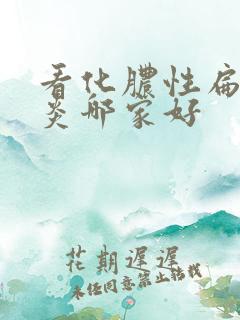 看化膿性扁
炎那家好
花期遲遲
未经同意禁止转载